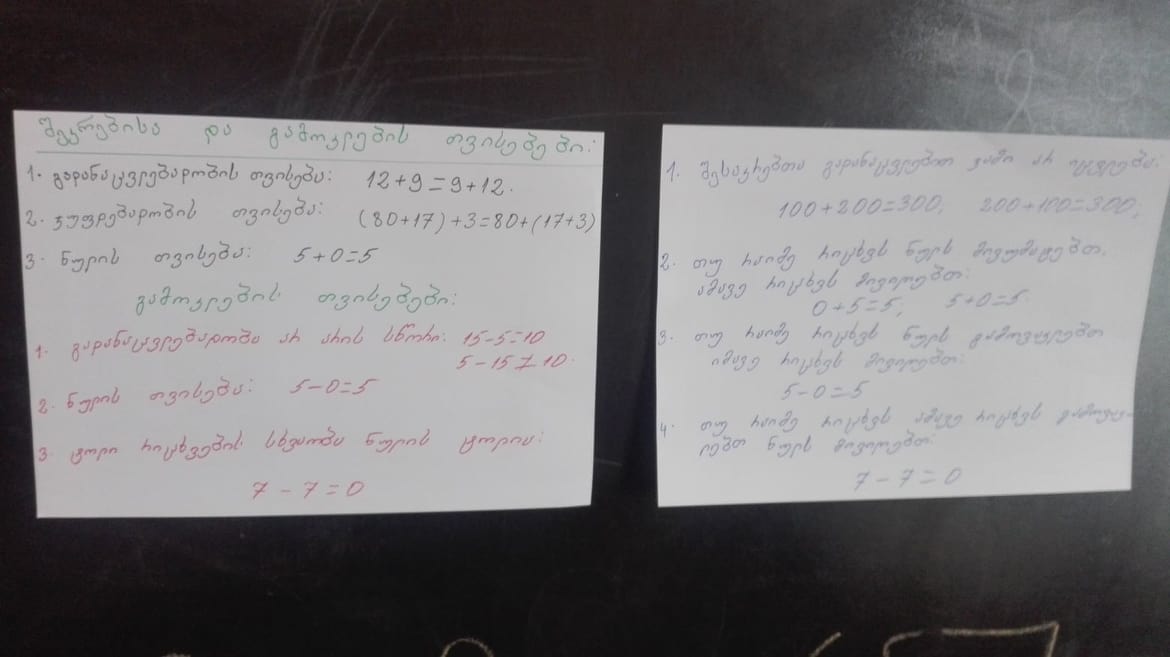 შეკრებისა და გამოკლების თვისებები:
1. გადანაცვლებადობის თვისება: 12+9=9+12.
2. ჯუფდებადობის თვისება: (80+17)+3=80+(17+3)
3. ნულის თვისება: 5+0=5
გამოკლების თვისებები:
1. გადანაცვლებადობა არ არის სწორი: 15-5=10
5-15≠10.
2. ნულის თვისება: 5-0=5
3. ტოლი რიცხვების სხვაობა ნულის ტოლია:
7-7=0
1. შესაკრებთა გადანაცვლებით ჯამი არ იცვლება:
100+200=300, 200+100=300,
2. თუ რაიმე რიცხვს ნულს მივუმატებთ,
ამავე რიცხვს მივიღებთ:
0+5=5; 5+0=5.
3. თუ რაიმე რიცხვს ნულს გამოვაკლებთ
იმავე რიცხვს მივიღებთ:
5-0=5
4. თუ რაიმე რიცხვს ამავე რიცხვს გამოვაკ-
ლებთ ნულს მივიღებთ:
7-7=0